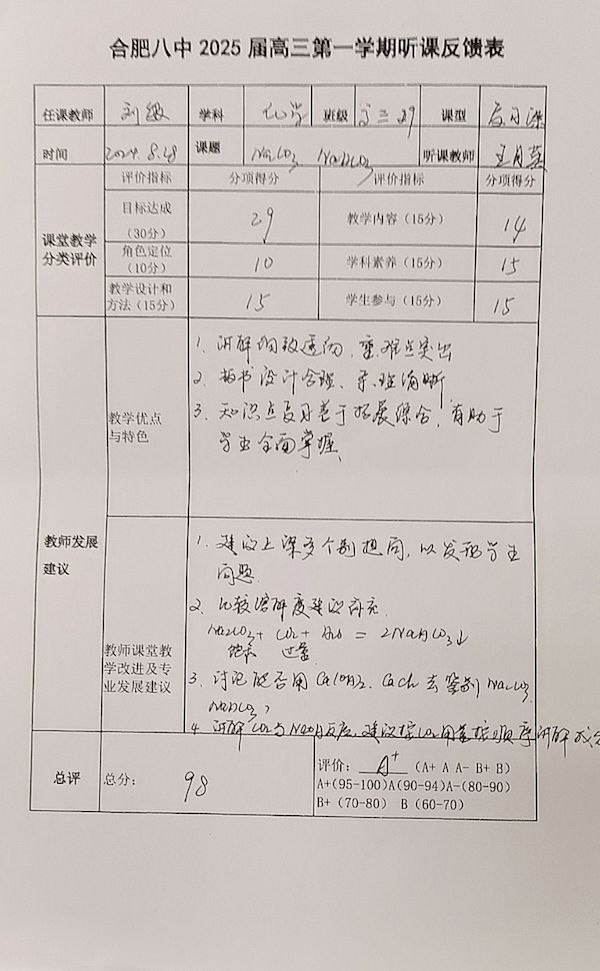 合肥八中 2025 届高三第一学期听课反馈表
任课教师 刘 学科 化学 班级 高三 29 课型 复习课
时间 2024.8.28 课题 Na2CO3 NaHCO3 听课教师 王月
评价指标 分项得分 评价指标 分项得分
课堂教学分类评价
目标达成（30分） 29 教学内容（15分） 14
角色定位（10分） 10 学科素养（15分） 15
教学设计和方法（15分） 15 学生参与（15分） 15
教师发展建议
教学优点与特色
1. 讲解细致透彻，重难点突出
2. 板书设计合理、条理清晰
3. 知识点复习基于拓展综合，有助于
学生全面掌握
教师课堂教学改进及专业发展建议
1. 建议上课多个别提问，以发现学生
问题.
2. 比较溶解度建议补充.
Na2CO3 + CO2 + H2O = 2NaHCO3↓
饱和 过量
3. 讨论能否用 Ca(OH)2、CaCl2 去鉴别 Na2CO3
NaHCO3?
4. 讲解 CO2 与 NaOH 反应，建议按 CO2 用量按顺序讲解
总评 总分： 98
评价： A+ （A+ A A- B+ B）
A+(95-100)A(90-94)A-(80-90)
B+ (70-80) B (60-70)